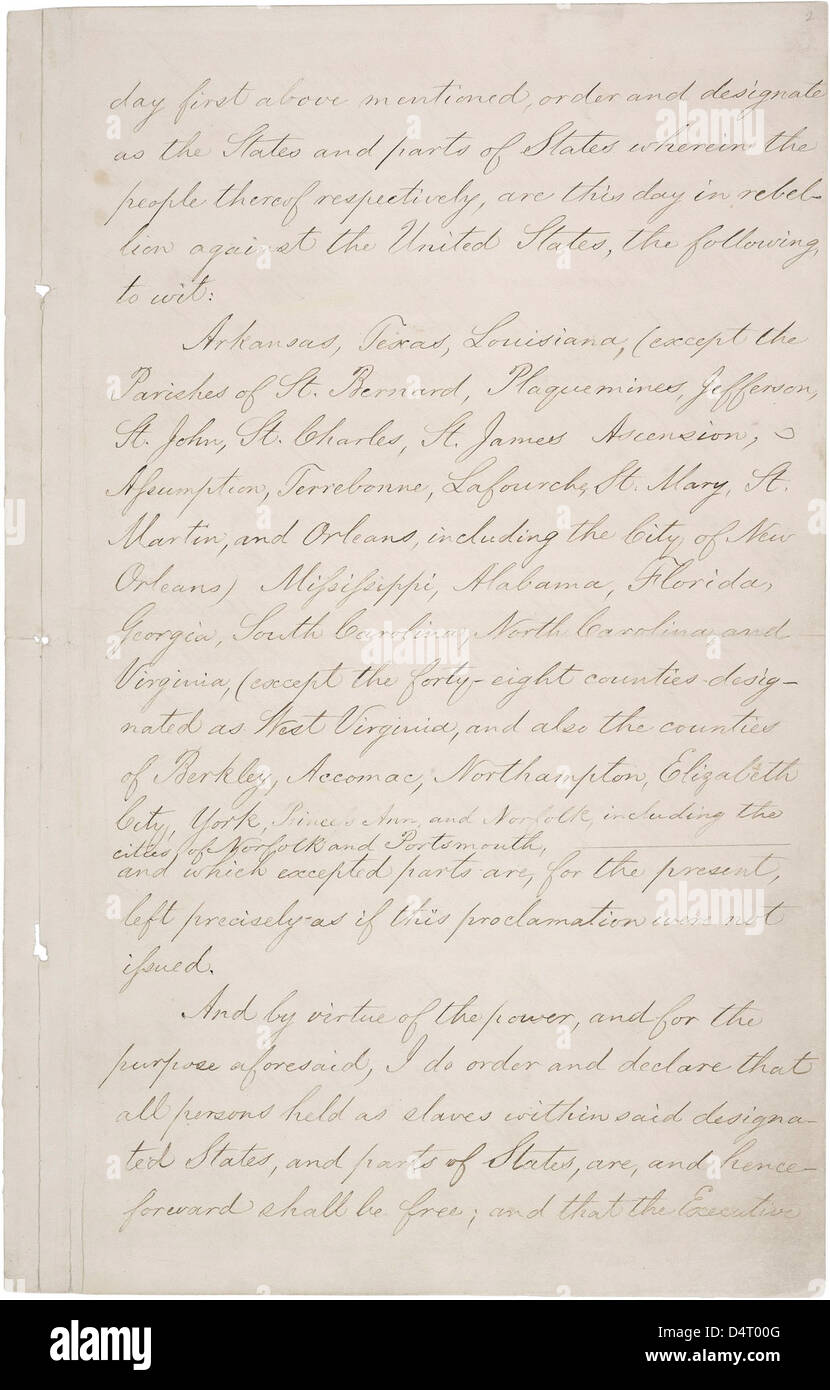 2
day first above mentioned, order and designate
as the States and parts of States wherein the
people thereof respectively, are this day in rebel-
lion against the United States, the following,
to wit:
Arkansas, Texas, Louisiana, (except the
Parishes of St. Bernard, Plaquemines, Jefferson,
St. John, St. Charles, St. James Ascension,
Assumption, Terrebonne, Lafourche, St. Mary, St.
Martin, and Orleans, including the City of New
Orleans) Mississippi, Alabama, Florida,
Georgia, South Carolina, North Carolina, and
Virginia, (except the forty-eight counties desig-
nated as West Virginia, and also the counties
of Berkley, Accomac, Northampton, Elizabeth
City, York, Princess Ann, and Norfolk, including the
cities of Norfolk and Portsmouth,
and which excepted parts are, for the present,
left precisely as if this proclamation were not
issued.
And by virtue of the power, and for the
purpose aforesaid, I do order and declare that
all persons held as slaves within said designa-
ted States, and parts of States, are, and hence-
forward shall be free; and that the Executive
alamy
Image ID: D4T00G
www.alamy.com